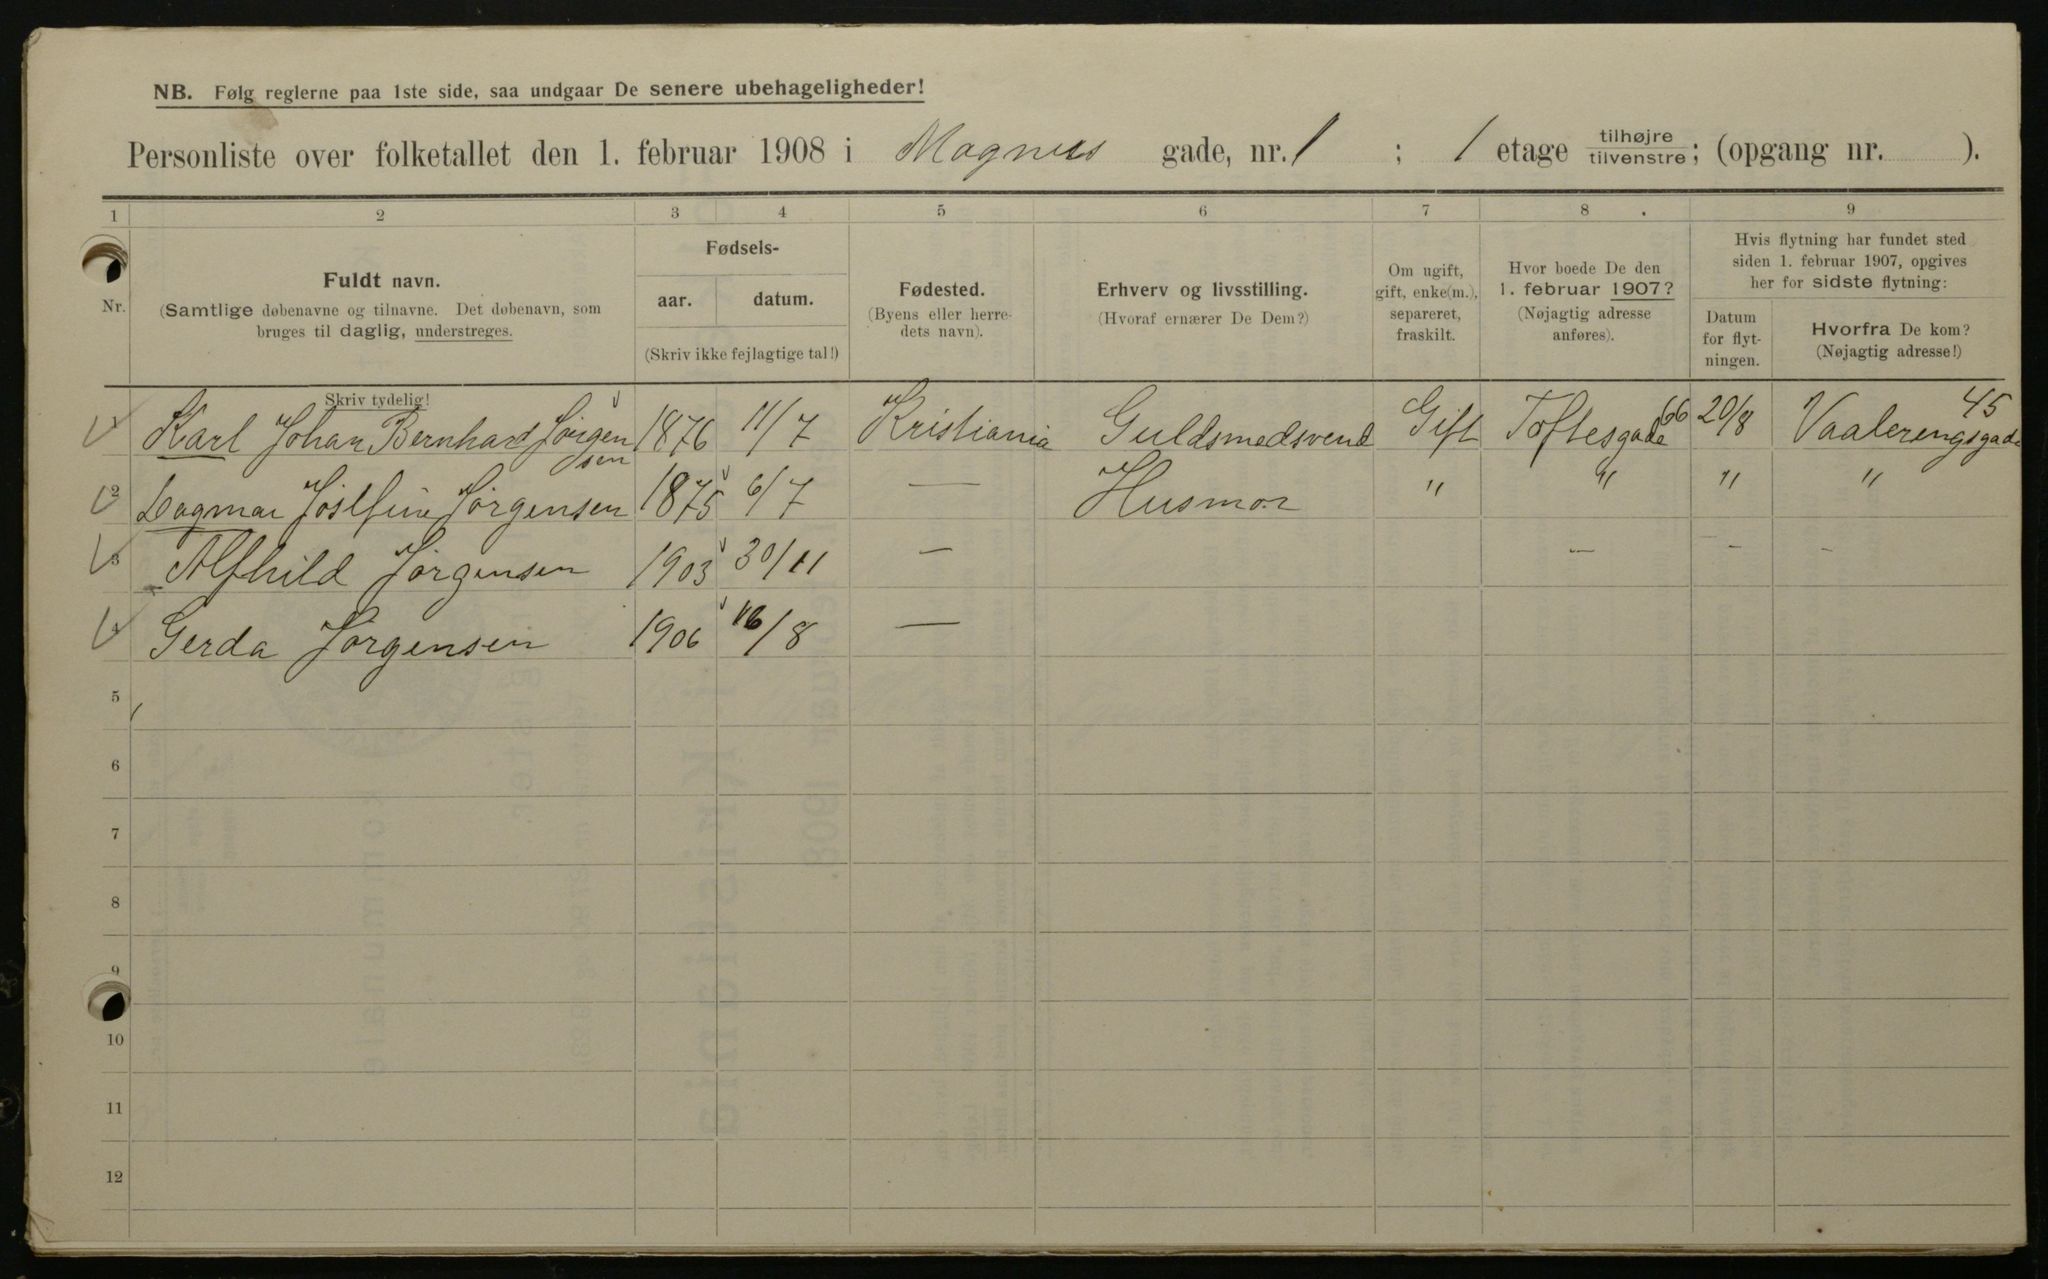 NB. Følg reglerne paa 1ste side, saa undgaar De senere ubehageligheder!
Personliste over folketallet den 1. februar 1908 i Magnus gade, nr. 1 ; 1 etage tilhøjre tilvenstre; (opgang nr. ).
1 2 3 4 5 6 7 8 9
Nr.
Fuldt navn.
(Samtlige døbenavne og tilnavne. Det døbenavn, som
bruges til daglig, understreges.
Skriv tydelig!
Fødsels-
aar. datum.
(Skriv ikke fejlagtige tal!)
Fødested.
(Byens eller herre-
dets navn).
Erhverv og livsstilling.
(Hvoraf ernærer De Dem?)
Om ugift,
gift, enke(m.),
separeret,
fraskilt.
Hvor boede De den
1. februar 1907?
(Nøjagtig adresse
anføres).
Hvis flytning har fundet sted
siden 1. februar 1907, opgives
her for sidste flytning:
Datum
for flyt-
ningen.
Hvorfra De kom?
(Nøjagtig adresse!)
1 Karl Johan Bernhard Jørgensen 1876 11/7 Kristiania Guldsmedsvend Gift Toftesgade 66 20/8 Vaalerengsgade 45
2 Dagmar Josefine Jørgensen 1875 6/7 — Husmor " " " "
3 Alfhild Jørgensen 1903 30/11 — – – –
4 Gerda Jørgensen 1906 16/8 —
5
6
7
8
9
10
11
12